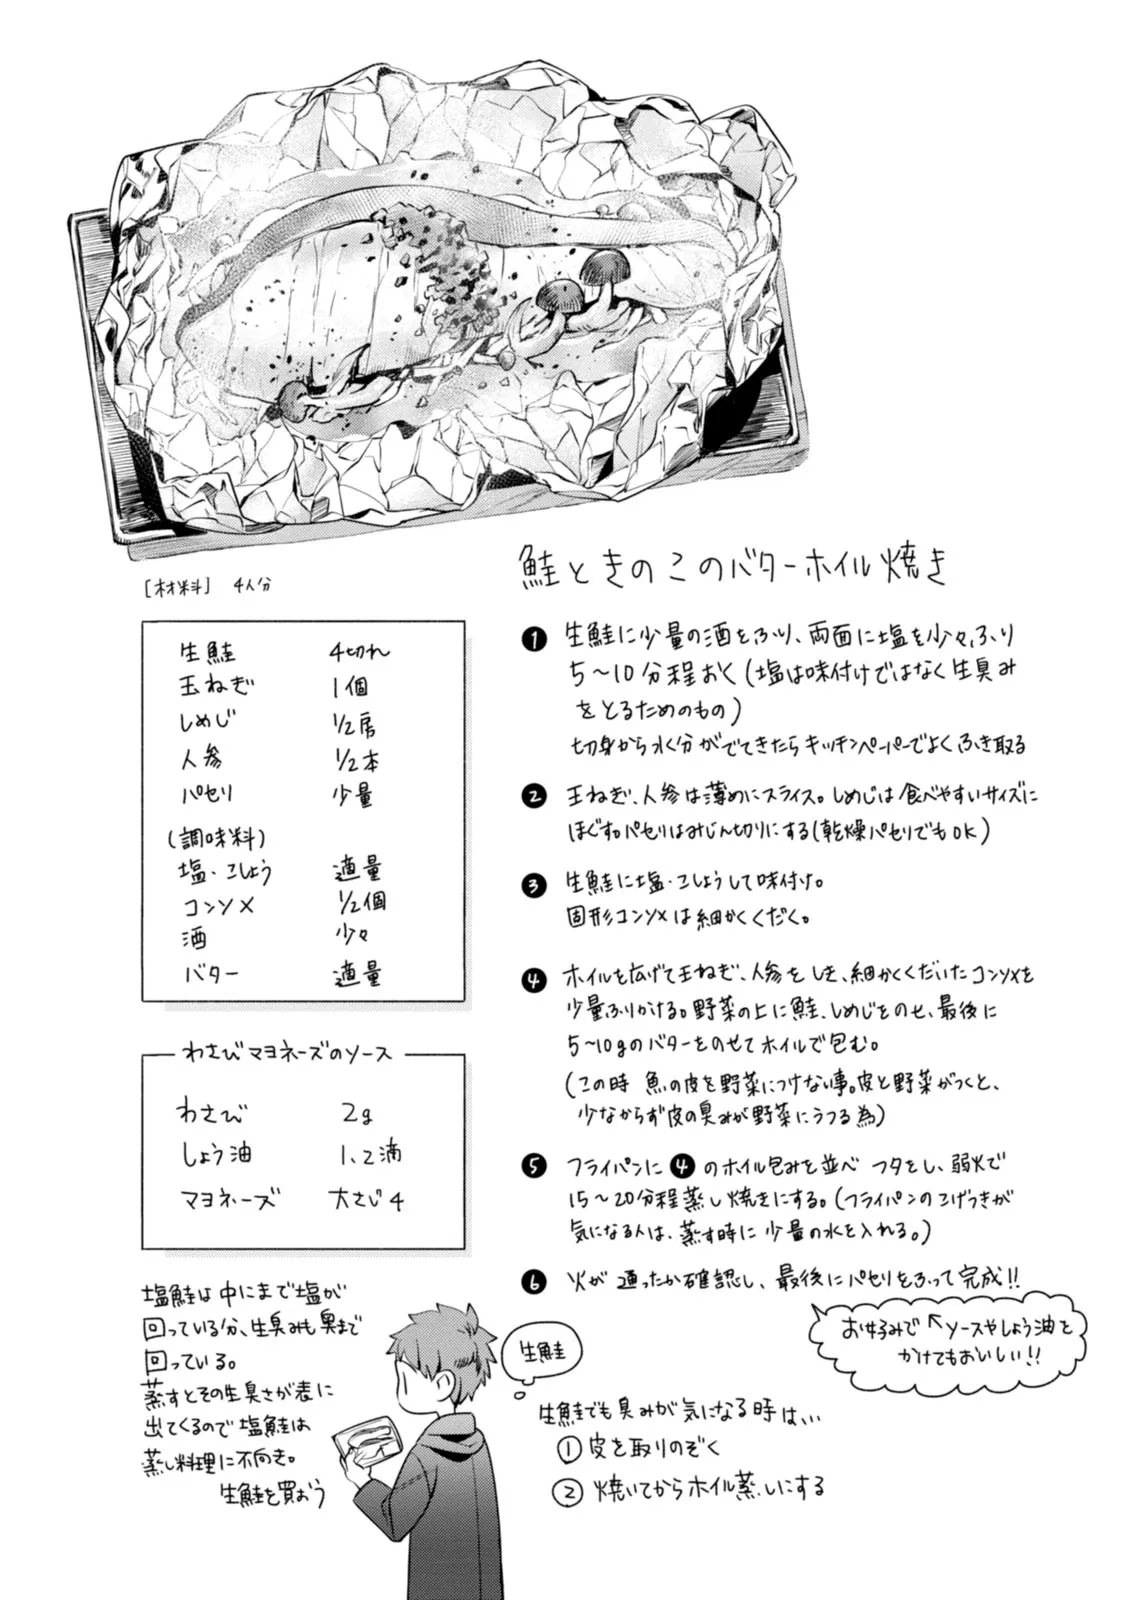 鮭ときのこのバターホイル焼き
[材料] 4人分
生鮭 4切れ
玉ねぎ 1個
しめじ 1/2房
人参 1/2本
パセリ 少量
(調味料)
塩・こしょう 適量
コンソメ 1/2個
酒 少々
バター 適量
わさびマヨネーズのソース
わさび 2g
しょう油 1、2滴
マヨネーズ 大さじ4
❶ 生鮭に少量の酒をふり、両面に塩を少々ふり
5〜10分程おく(塩は味付けではなく生臭み
をとるためのもの)
切身から水分がでてきたらキッチンペーパーでよくふき取る
❷ 玉ねぎ、人参は薄めにスライス。しめじは食べやすいサイズに
ほぐす。パセリはみじん切りにする(乾燥パセリでもOK)
❸ 生鮭に塩・こしょうして味付け。
固形コンソメは細かくくだく。
❹ ホイルを広げて玉ねぎ、人参をしき、細かくくだいたコンソメを
少量ふりかける。野菜の上に鮭、しめじをのせ、最後に
5〜10gのバターをのせてホイルで包む。
(この時 魚の皮を野菜につけない事。皮と野菜がつくと、
少なからず皮の臭みが野菜にうつる為)
❺ フライパンに❹のホイル包みを並べ フタをし、弱火で
15〜20分程蒸し焼きにする。(フライパンのこげつきが
気になる人は、蒸す時に少量の水を入れる。)
❻ 火が通ったか確認し、最後にパセリをふって完成!!
お好みで←ソースやしょう油を
かけてもおいしい!!
塩鮭は中にまで塩が
回っている分、生臭みも奥まで
回っている。
蒸すとその生臭さが表に
出てくるので塩鮭は
蒸し料理に不向き。
生鮭を買おう
生鮭
生鮭でも臭みが気になる時は、、、
①皮を取りのぞく
②焼いてからホイル蒸しにする